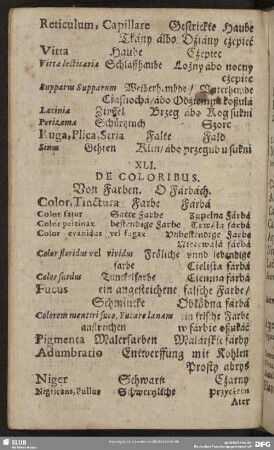 Reticulum, Capillare Gestrickte Haube
Tkány álbo Dziány czepiec
Vitta Haube Czepiec
Vitta lecticaria Schlaffhaube Lożny ábo nocny
czepiec
Lacinia Zipffel Brzeg ábo Rog sukni
Perizoma Schürtztuch Szorc
Ruga, Plica, Stria Falte Fałd
Sinus Gehren Klin/ ábo przegub u sukni
XLI.
DE COLORIBUS.
Von Farben. O Fárbách.
Color, Tinctura Farbe Fárbá
Color satur Satte Farbe Zupełna Fárbá
Color pertinax bestendige Farbe Trwáła fárbá
Color evanidus vel fugax Unbestendige Farbe
Nietrwáła fárbá
Color floridus vel vividus Fröliche vnnd lebendige
farbe Cielista fárbá
Color surdus Tunckelfarbe Ciemna fárbá
Fucus ein angestrichene falsche Farbe/
Schmincke Obłudna fárbá
Colorem mentiri fuco, Fucare lanam ein falsche Farbe
anstreichen w fárbie oszukáć
Pigmenta Malerfarben Malárskie fárby
Adumbratio Entwerffung mit Kohlen
Prosty abrys
Niger Schwartz Czarny
Nigricans, Pullus Schwertzliche Przyczern
Ater
SLUB
DFG